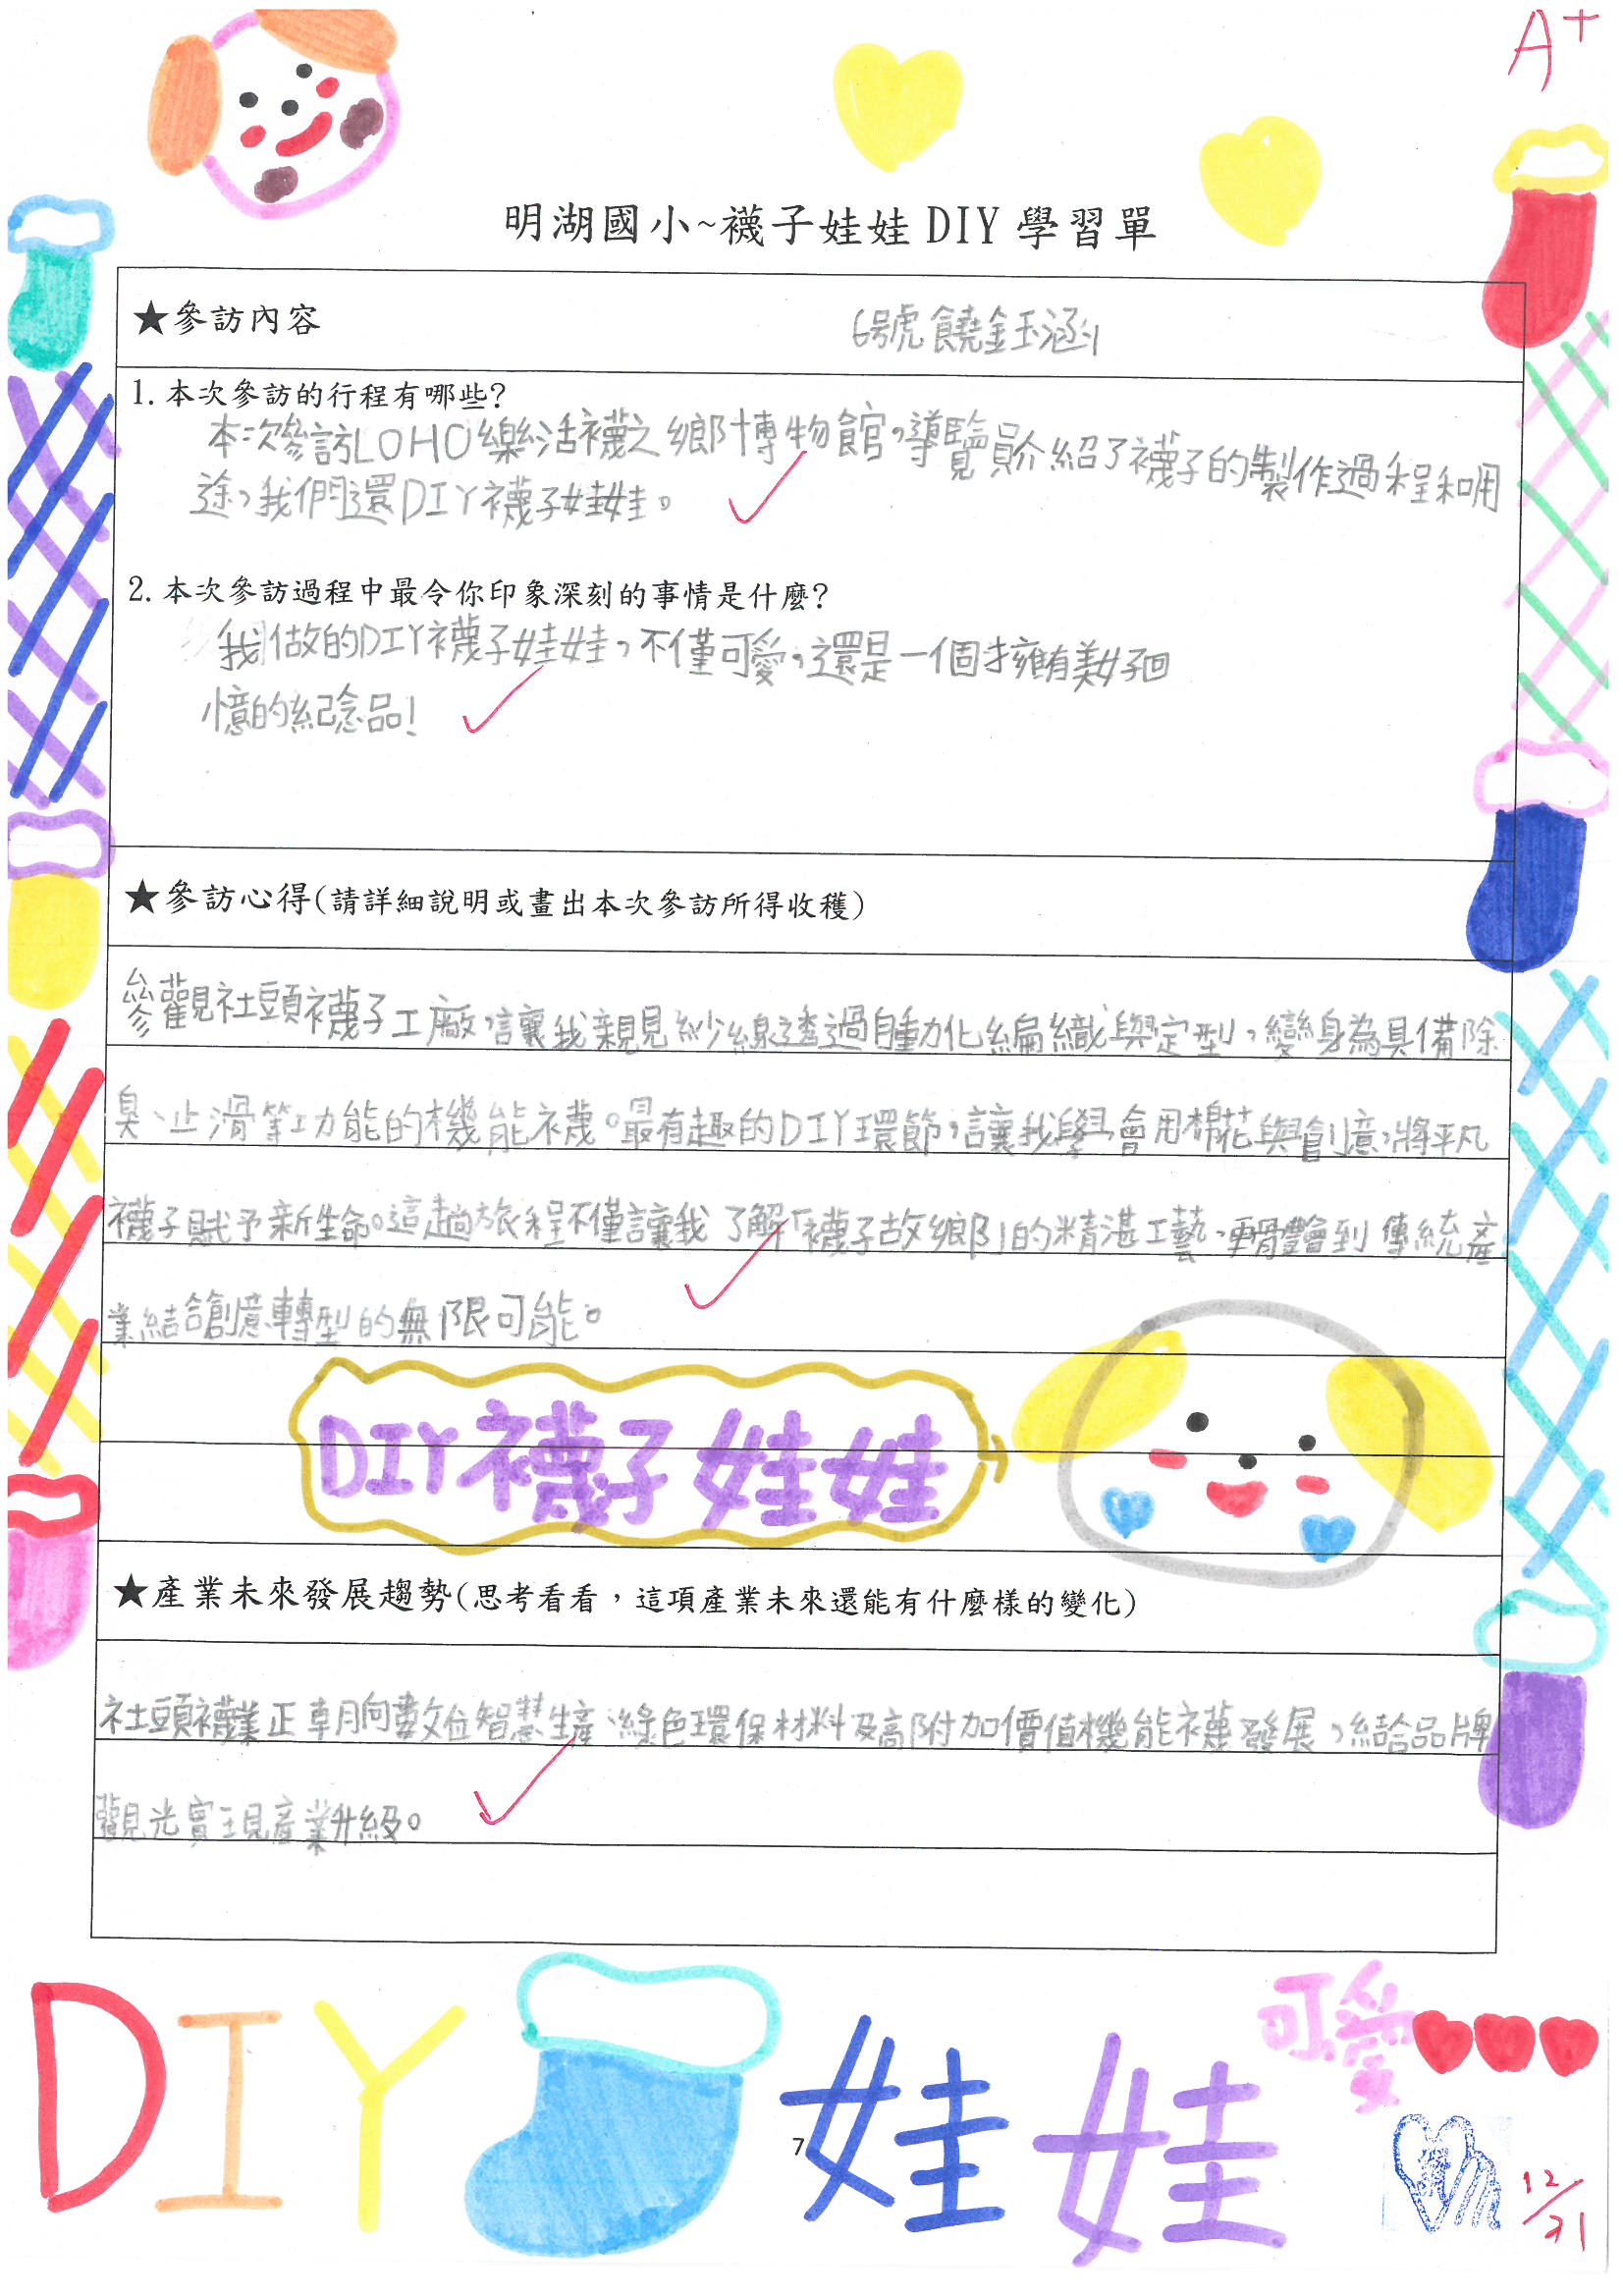 A+
明湖國小~襪子娃娃 DIY 學習單
★參訪內容
6號饒鈺涵
1. 本次參訪的行程有哪些?
本次參訪LOHO樂活襪之鄉博物館,導覽員介紹了襪子的製作過程和用
途,我們還DIY襪子娃娃。
2. 本次參訪過程中最令你印象深刻的事情是什麼?
我做的DIY襪子娃娃,不僅可愛,還是一個擁有美好回
憶的紀念品!
★參訪心得(請詳細說明或畫出本次參訪所得收穫)
參觀社頭襪子工廠,讓我親見紗線透過自動化編織與定型,變身為具備除
臭、止滑等功能的機能襪。最有趣的DIY環節,讓我學會用棉花與創意,將平凡
襪子賦予新生命。這趟旅程不僅讓我了解「襪子故鄉」的精湛工藝,更體驗到傳統產
業結合創意轉型的無限可能。
DIY襪子娃娃
★產業未來發展趨勢(思考看看,這項產業未來還能有什麼樣的變化)
社頭襪業正朝向數位智慧生產、綠色環保材料及高附加價值機能襪發展,結合品牌
觀光實現產業升級。
可愛
DIY 娃娃
7
12/31